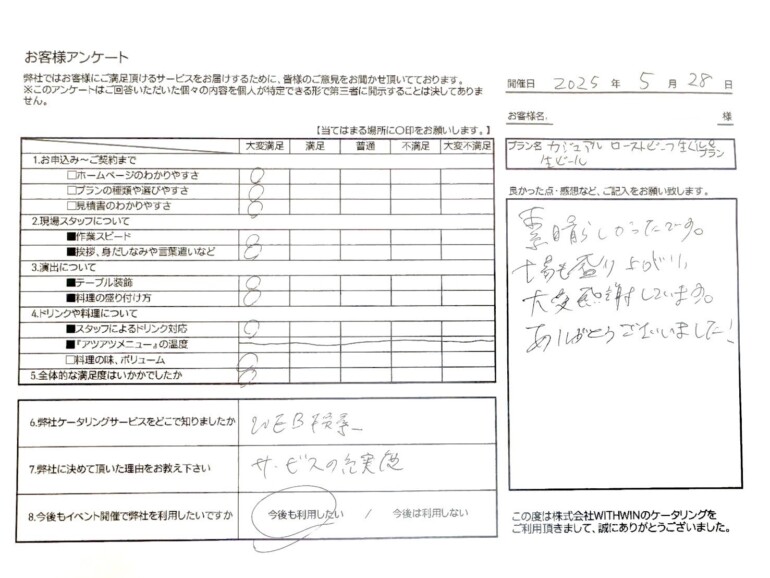 お客様アンケート
弊社ではお客様にご満足頂けるサービスをお届けするために、皆様のご意見をお聞かせ頂いてております。
※このアンケートはご回答いただいた個々の内容を個人が特定できる形で第三者に開示することは決してありません。
開催日 2025 年 5 月 28 日
お客様名 様
プラン名 カジュアル ローストビーフ 生ビール プラン
【当てはまる場所に〇印をお願いします。】
大変満足 満足 普通 不満足 大変不満足
1.お申込み～ご契約まで
□ホームページのわかりやすさ
□プランの種類や選びやすさ
□見積書のわかりやすさ
2.現場スタッフについて
■作業スピード
■挨拶、身だしなみや言葉遣いなど
3.演出について
■テーブル装飾
■料理の盛り付け方
4.ドリンクや料理について
■スタッフによるドリンク対応
■『アツアツメニュー』の温度
□料理の味、ボリューム
5.全体的な満足度はいかかでしたか
6.弊社ケータリングサービスをどこで知りましたか WEB検索
7.弊社に決めて頂いた理由をお教え下さい サービスの充実度
8.今後もイベント開催で弊社を利用したいですか 今後も利用したい / 今後は利用しない
良かった点・感想など、ご記入をお願い致します。
素晴らしかったです。
場も盛り上がり
大変感謝しています。
ありがとうございました!
この度は株式会社WITHWINのケータリングを
ご利用頂きまして、誠にありがとうございました。